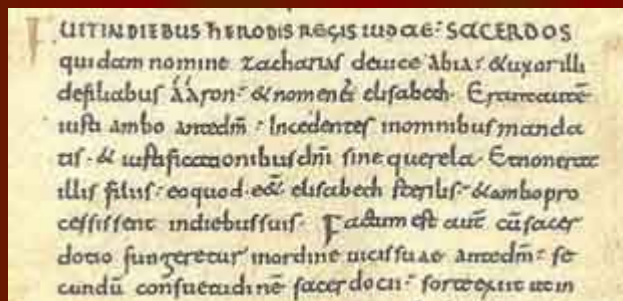 FUIT IN DIEBUS hERODIS REGIS IUDAE· SACERDOS
quidam nomine zacharias deuice abia· & uxor illi
defiliabus ááron· & nomen ei elisabeth· Erantautē
iusti ambo antedm̄· Incedentes inomnibus manda
tis· & iustificationibus dn̄i sine querela· Et nonerat
illis filius· eoquod· eēt elisabeth sterilis· & ambo pro
cessissent indiebus suis· Factum est autē cū sacer
dotio fungeretur inordine uicissuae antedm̄· se
cundū consuetudinē sacerdotii· sorte exiit ut in